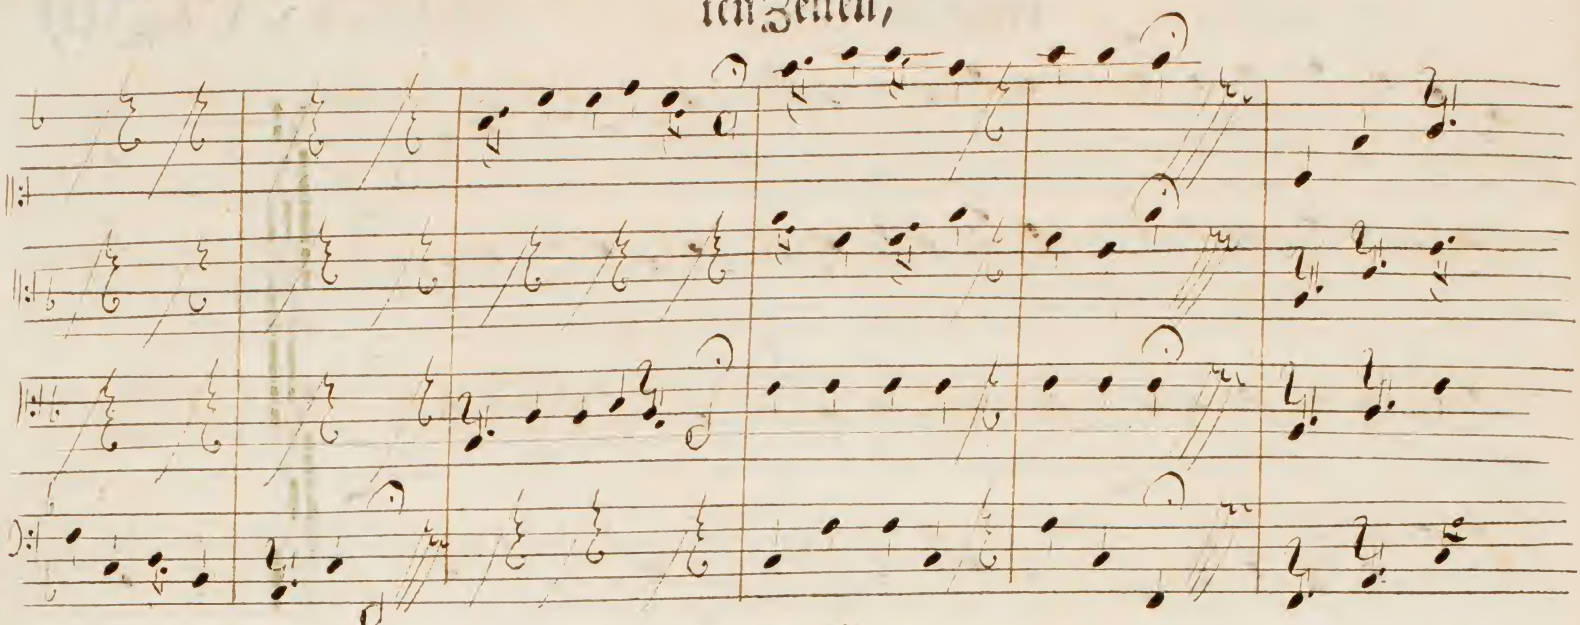 ren Zeiten,